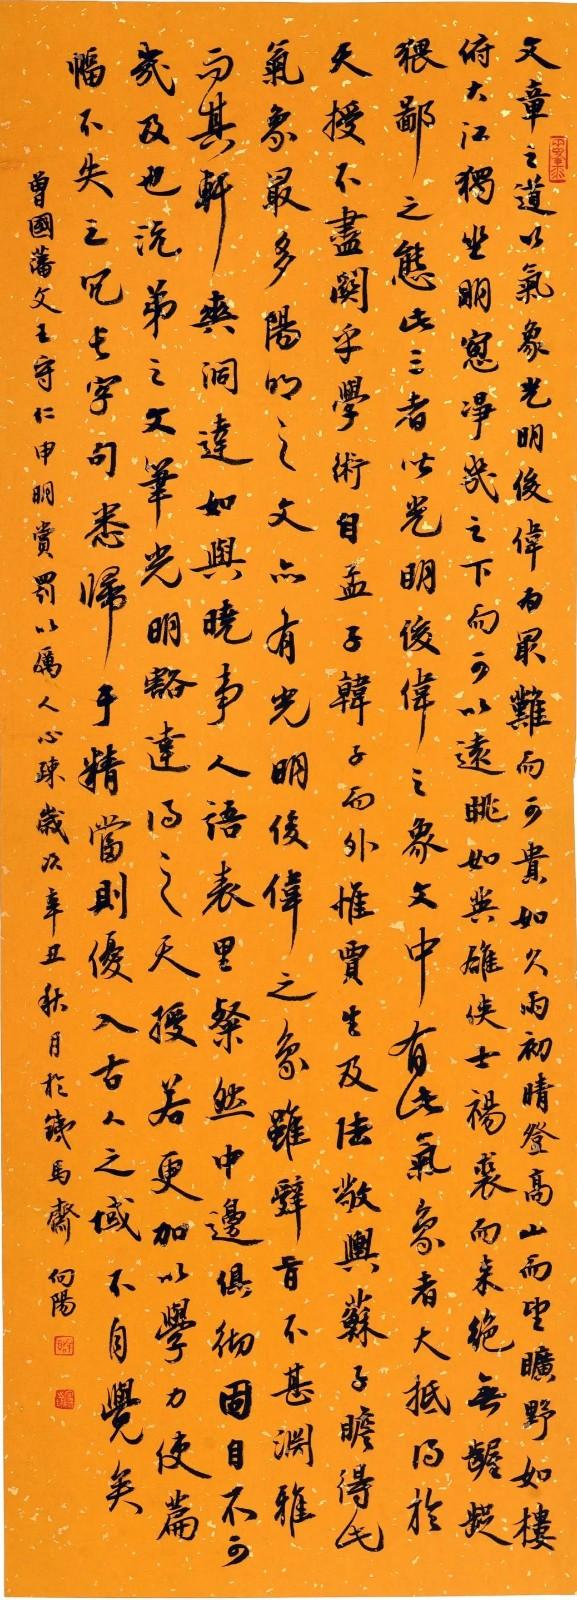 文章之道以氣象光明俊偉為最難而可貴如久雨初晴登高山而望曠野如樓
俯大江獨坐明窗淨几之下而可以遠眺如英雄俠士裼裘而來絕無齷齪
猥鄙之態此三者皆光明俊偉之象文中有此氣象者大抵得於
天授不盡關乎學術自孟子韓子而外惟賈生及陸敬輿蘇子瞻得此
氣象最多陽明之文亦有光明俊偉之象雖辭旨不甚淵雅
而其軒爽洞達如與曉事人語表里粲然中邊俱徹固自不可
幾及也沅弟之文筆光明豁達得之天授若更加以學力使篇
幅不失之冗長字句悉歸于精當則優入古人之域不自覺矣
曾國藩文王守仁申明賞罰以厲人心疏歲次辛丑秋月於鐵馬齋向陽